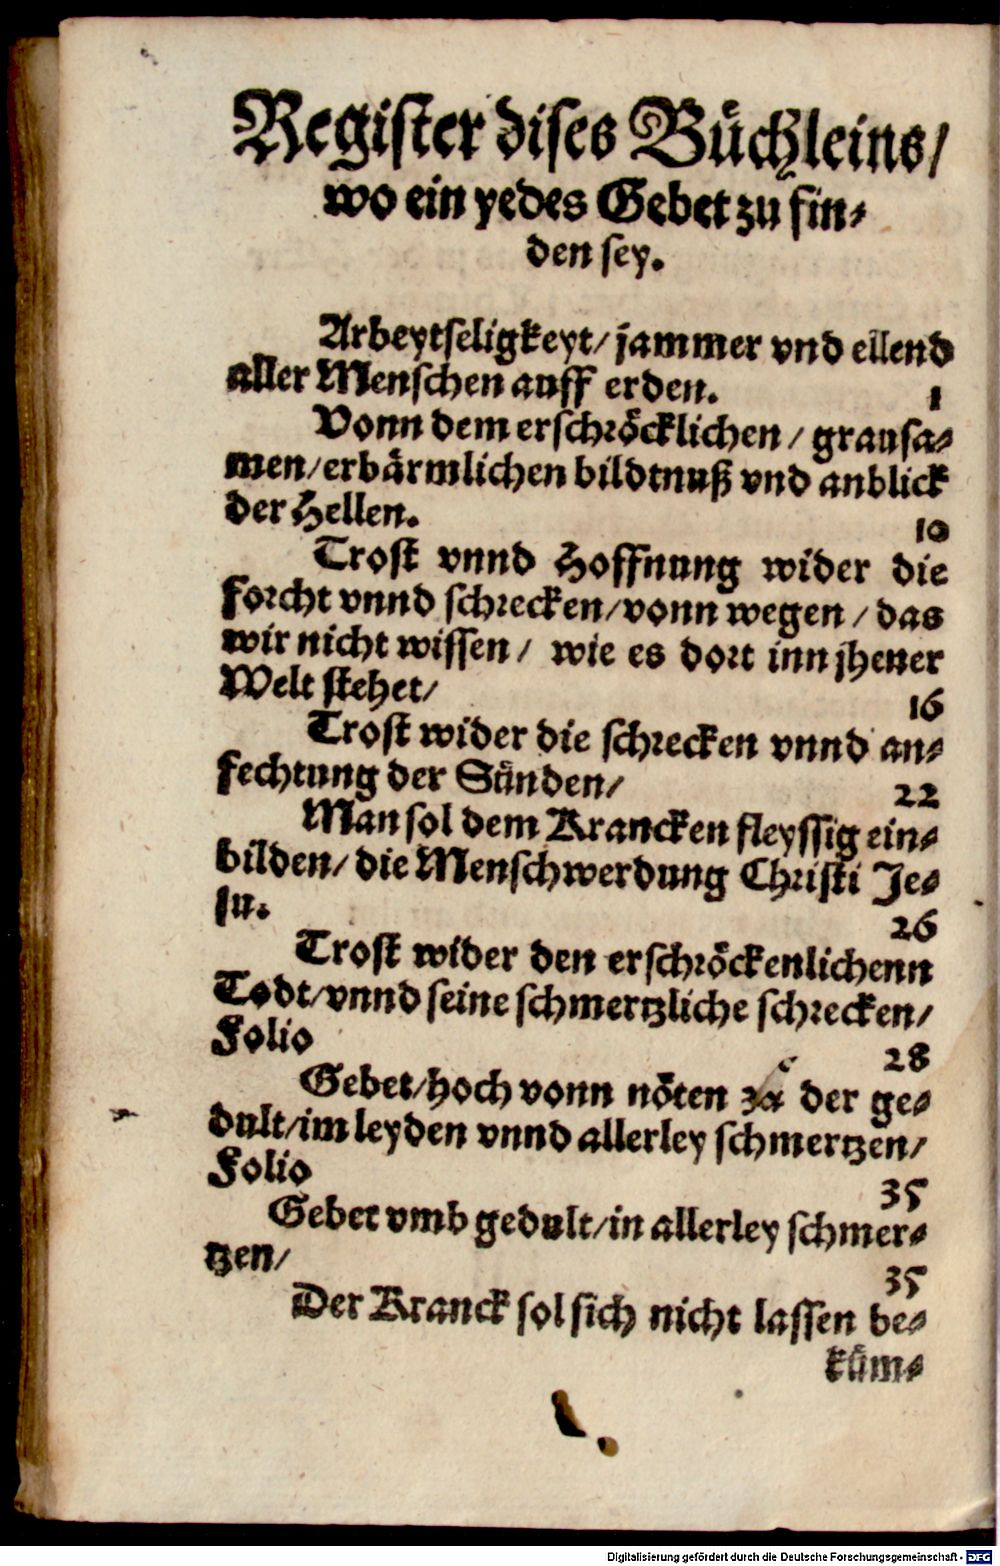 Register dises Büchleins/
wo ein yedes Gebet zu fin-
den sey.
Arbeytseligkeyt/ jammer vnd ellend
aller Menschen auff erden. 1
Vonn dem erschröcklichen/ grausa-
men/erbärmlichen bildtnuß vnd anblick
der Hellen. 10
Trost vnnd Hoffnung wider die
forcht vnnd schrecken/vonn wegen/ das
wir nicht wissen/ wie es dort inn jhener
Welt stehet/ 16
Trost wider die schrecken vnnd an-
fechtung der Sünden/ 22
Man sol dem Krancken fleyssig ein-
bilden/ die Menschwerdung Christi Je-
su. 26
Trost wider den erschröckenlichenn
Todt/vnnd seine schmertzliche schrecken/
Folio 28
Gebet/hoch vonn nöten zů der ge-
dult/im leyden vnnd allerley schmertzen/
Folio 35
Gebet vmb gedult/in allerley schmer-
tzen/ 35
Der Kranck sol sich nicht lassen be-
küm-
Digitalisierung gefördert durch die Deutsche Forschungsgemeinschaft - DFG